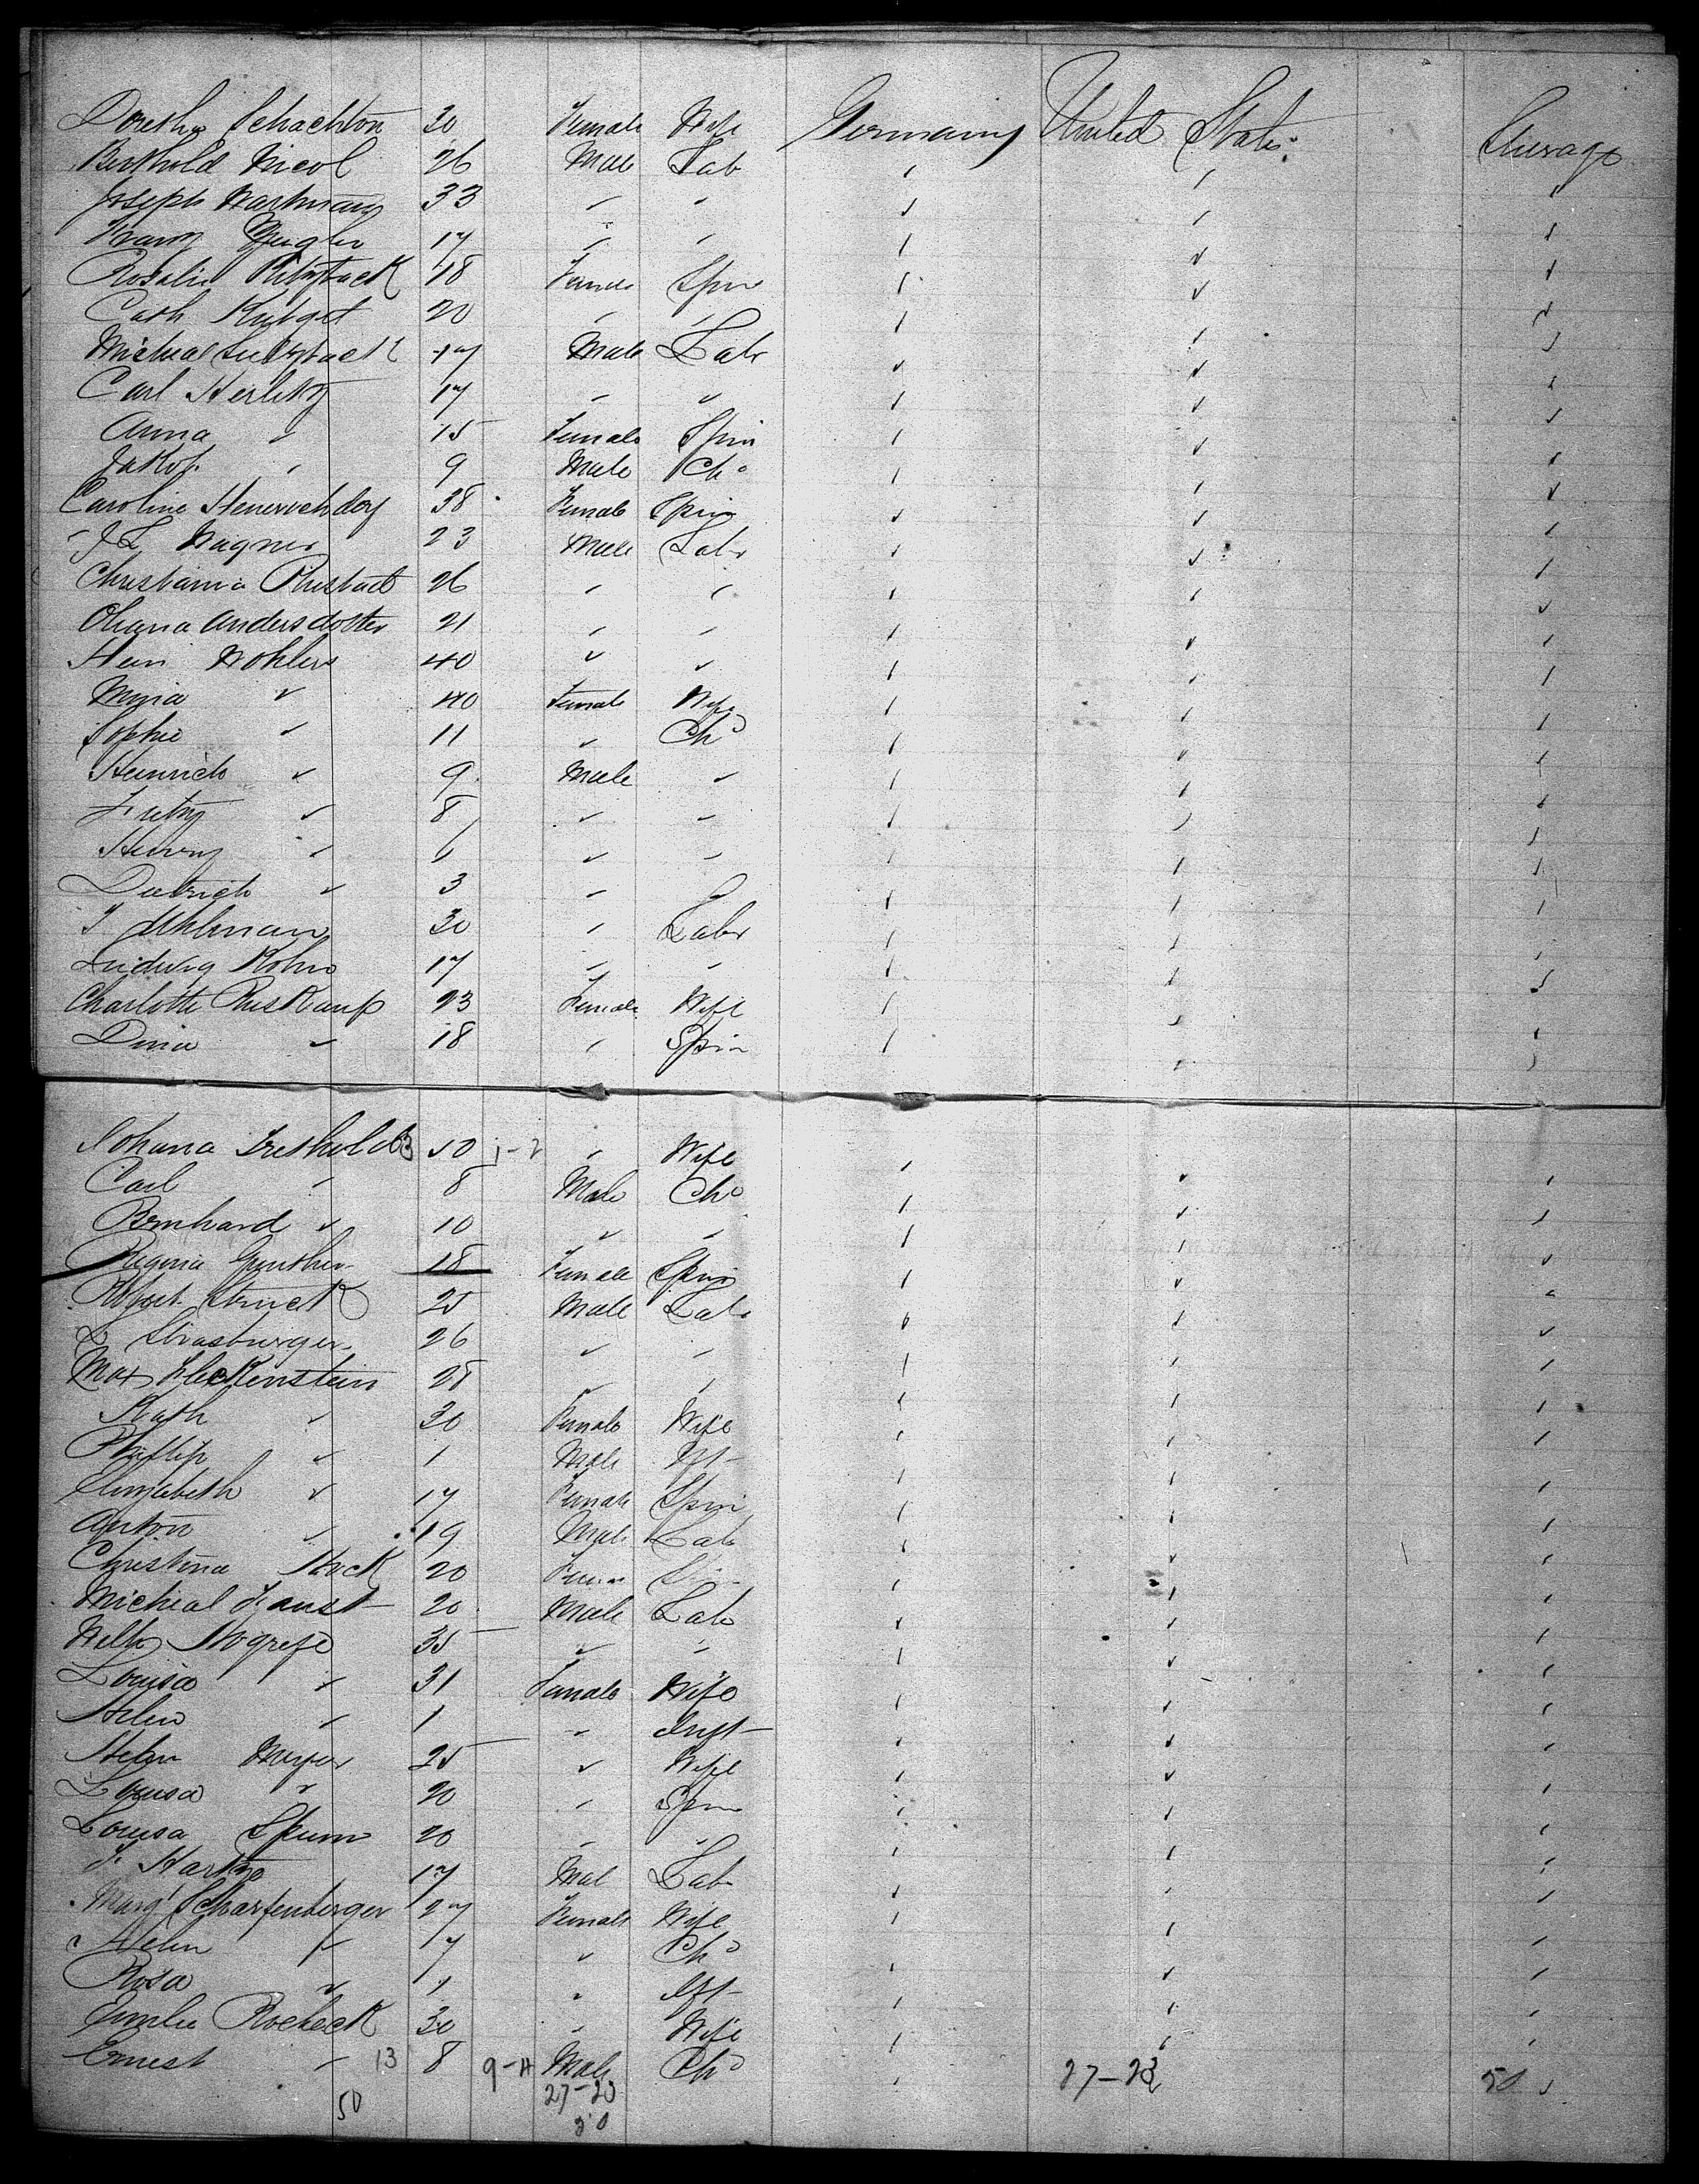 Dorethy Schachton 30 Female Wife Germany United States Steerage
Berthold Nicol 26 Male Lab
Joseph Hartmann 33 " "
Franz 17 " "
Rosalie 18 Female Spin
Cath 20 " "
Micheal 17 Male Labr
Carl Herlitz 17 " "
Anna " 15 Female Spin
Jakob " 9 Male Chd
Caroline 38 Female Spin
J L Wagner 23 Male Labr
Christiania 26 " "
Ohana Andersdotter 21 " "
Hein Wohlers 40 " "
Maria " 40 Female Wife
Sophie " 11 " Chd
Heinrich " 9 Male "
Fritz " 8 " "
Henry " 6 " "
Dietrich " 3 " "
J Uhlman 30 " Labr
Ludwig Kohn 17 " "
Charlotte Ruskamp 23 Female Wife
Dina " 18 " Spin
Johana 50 1-2 " Wife
Carl " 8 Male Chd
Bernhard " 10 " "
Regina Gunther 18 Female Spin
Robert Struck 25 Male Labr
L Strasburger 26 " "
Max Fleckenstein 28 " "
Kath " 30 Female Wife
Phillip " 1 Male Inft
Elizabeth " 17 Female Spin
Anton " 19 Male Lab
Christina Stock 20 Female Spin
Micheal Faust 20 Male Lab
Wilh Hogrefe 35 " "
Louisa " 31 Female Wife
Helen " 1 " Inft
Helen Meyer 25 " Wife
Louisa " 20 " Spin
Louisa Spum 20 " "
F Hartng 17 Mal Lab
Margt Scharfenberger 27 Female Wife
Helen " 7 " Chd
Rosa " 1 " Inft
Emilie Rocheck 30 " Wife
Ernest " 13 8 9-H Male Chd 27-23 50
50 27-23
50